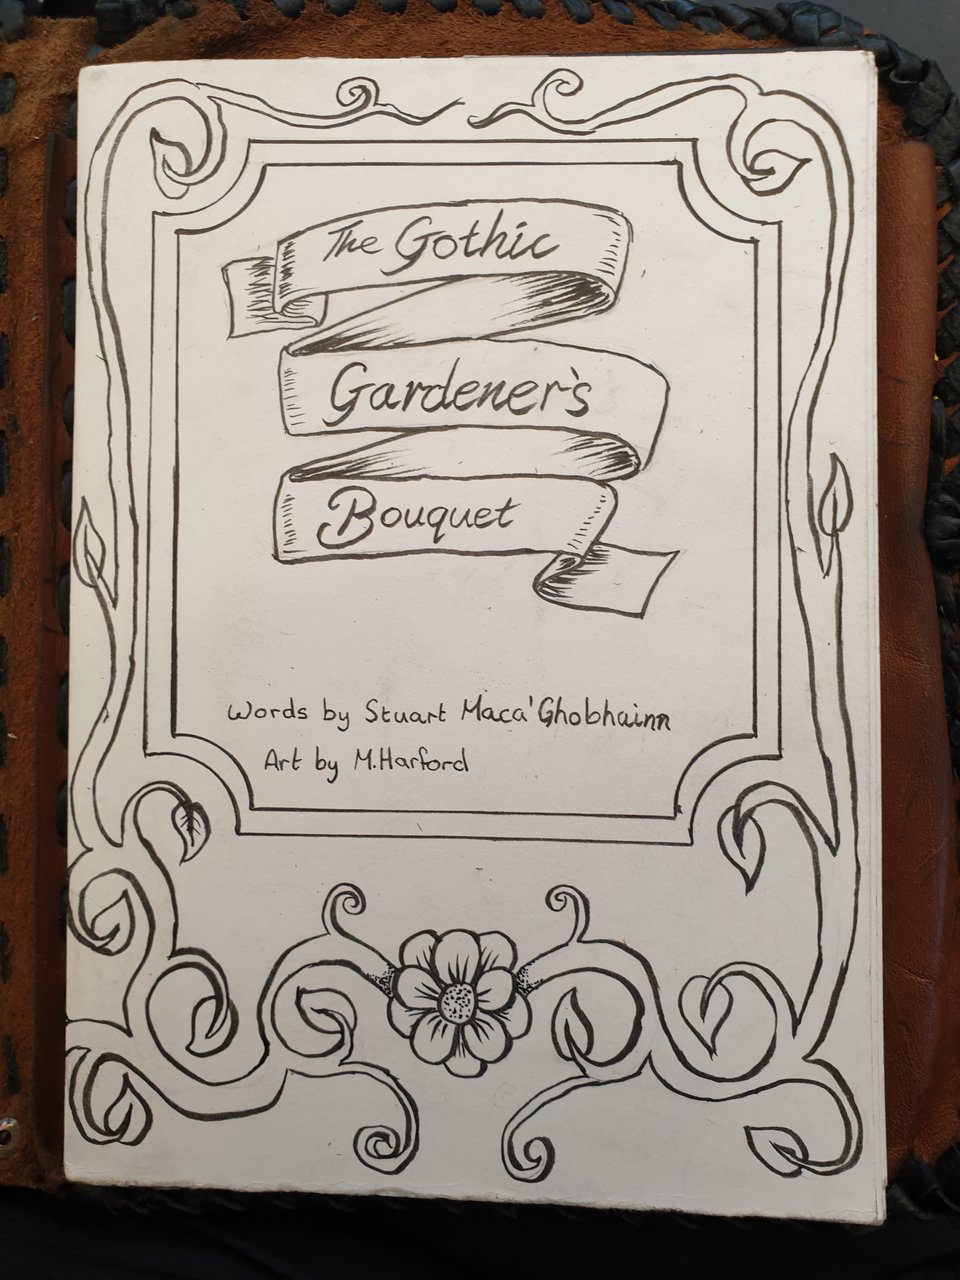 The Gothic
Gardener's
Bouquet
Words by Stuart Maca'Ghobhainn
Art by M.Harford